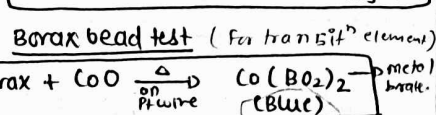 Borax bead test (For transitⁿ element)
rax + CoO —Δ→ on Pt wire Co(BO2)2 → metal borate.
(Blue)